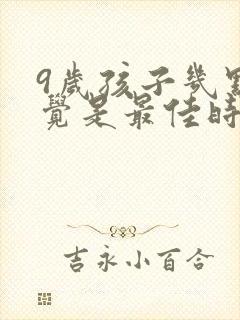 9歲孩子幾點
覺是最佳時
吉永小百合